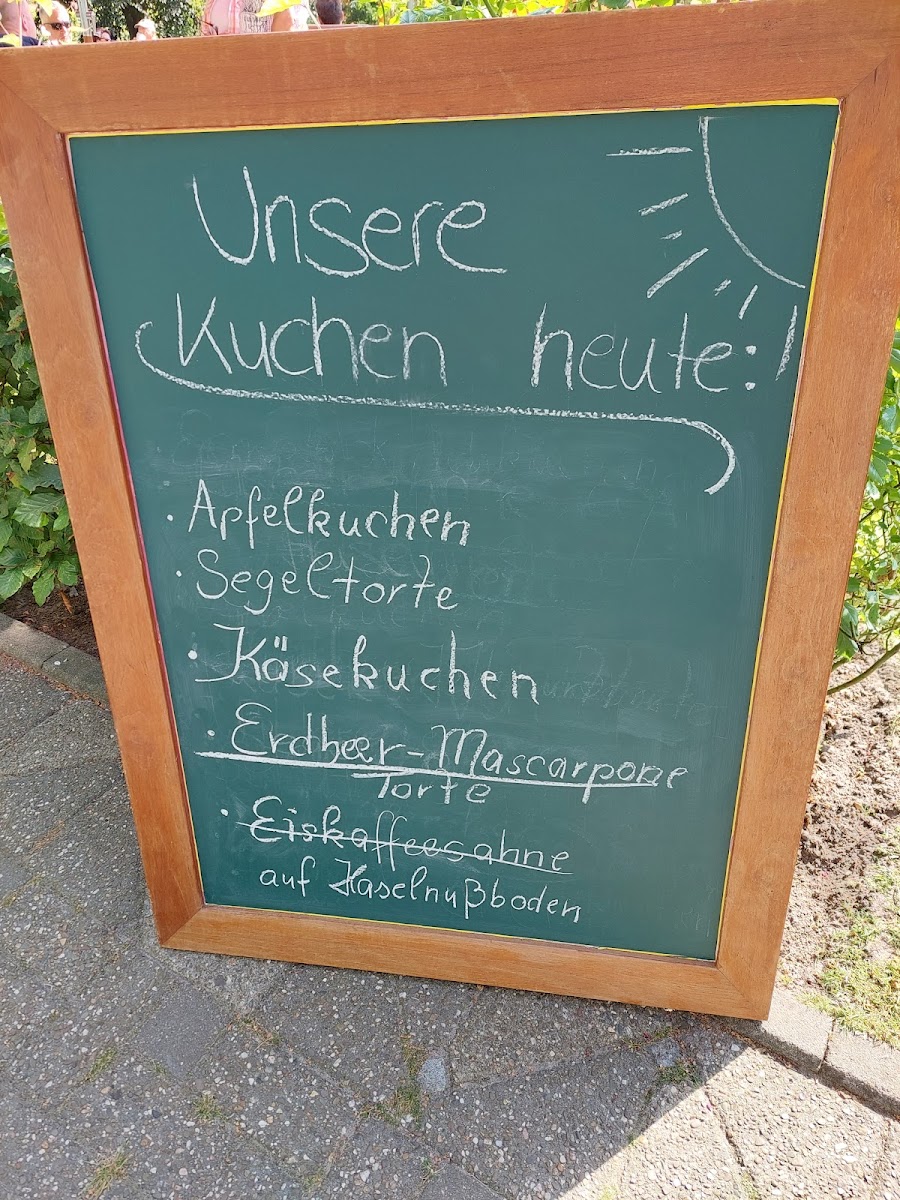 Unsere
Kuchen heute:
· Apfelkuchen
· Segeltorte
· Käsekuchen
· Erdbeer-Mascarpone
Torte
· Eiskaffeesahne
auf Haselnußboden